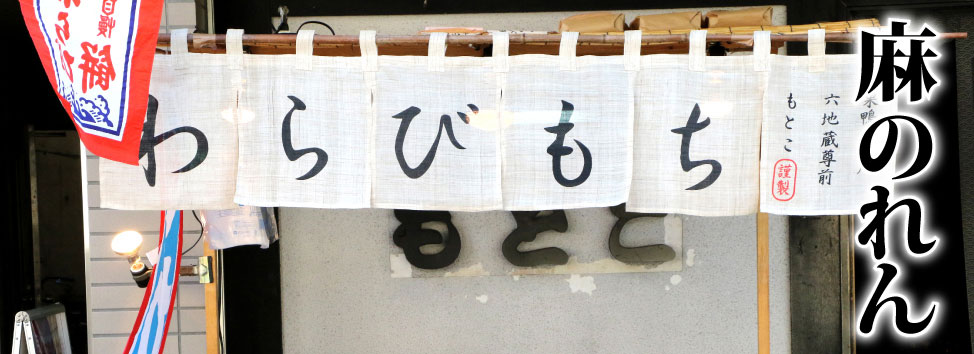 麻のれん
わらびもち
巣鴨
六地蔵尊前
もとこ
謹製
自慢
餅
もとこ